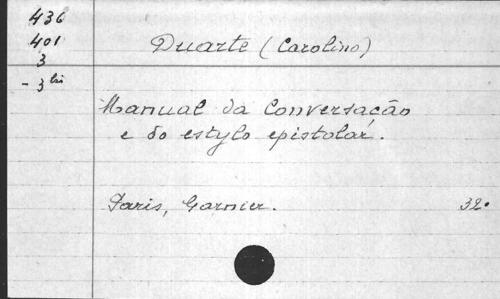 436
401
3
- 3 bis
Duarte (Carolino)
Manual da Conversação
e do estylo epistolar.
Paris, Garnier. 32º